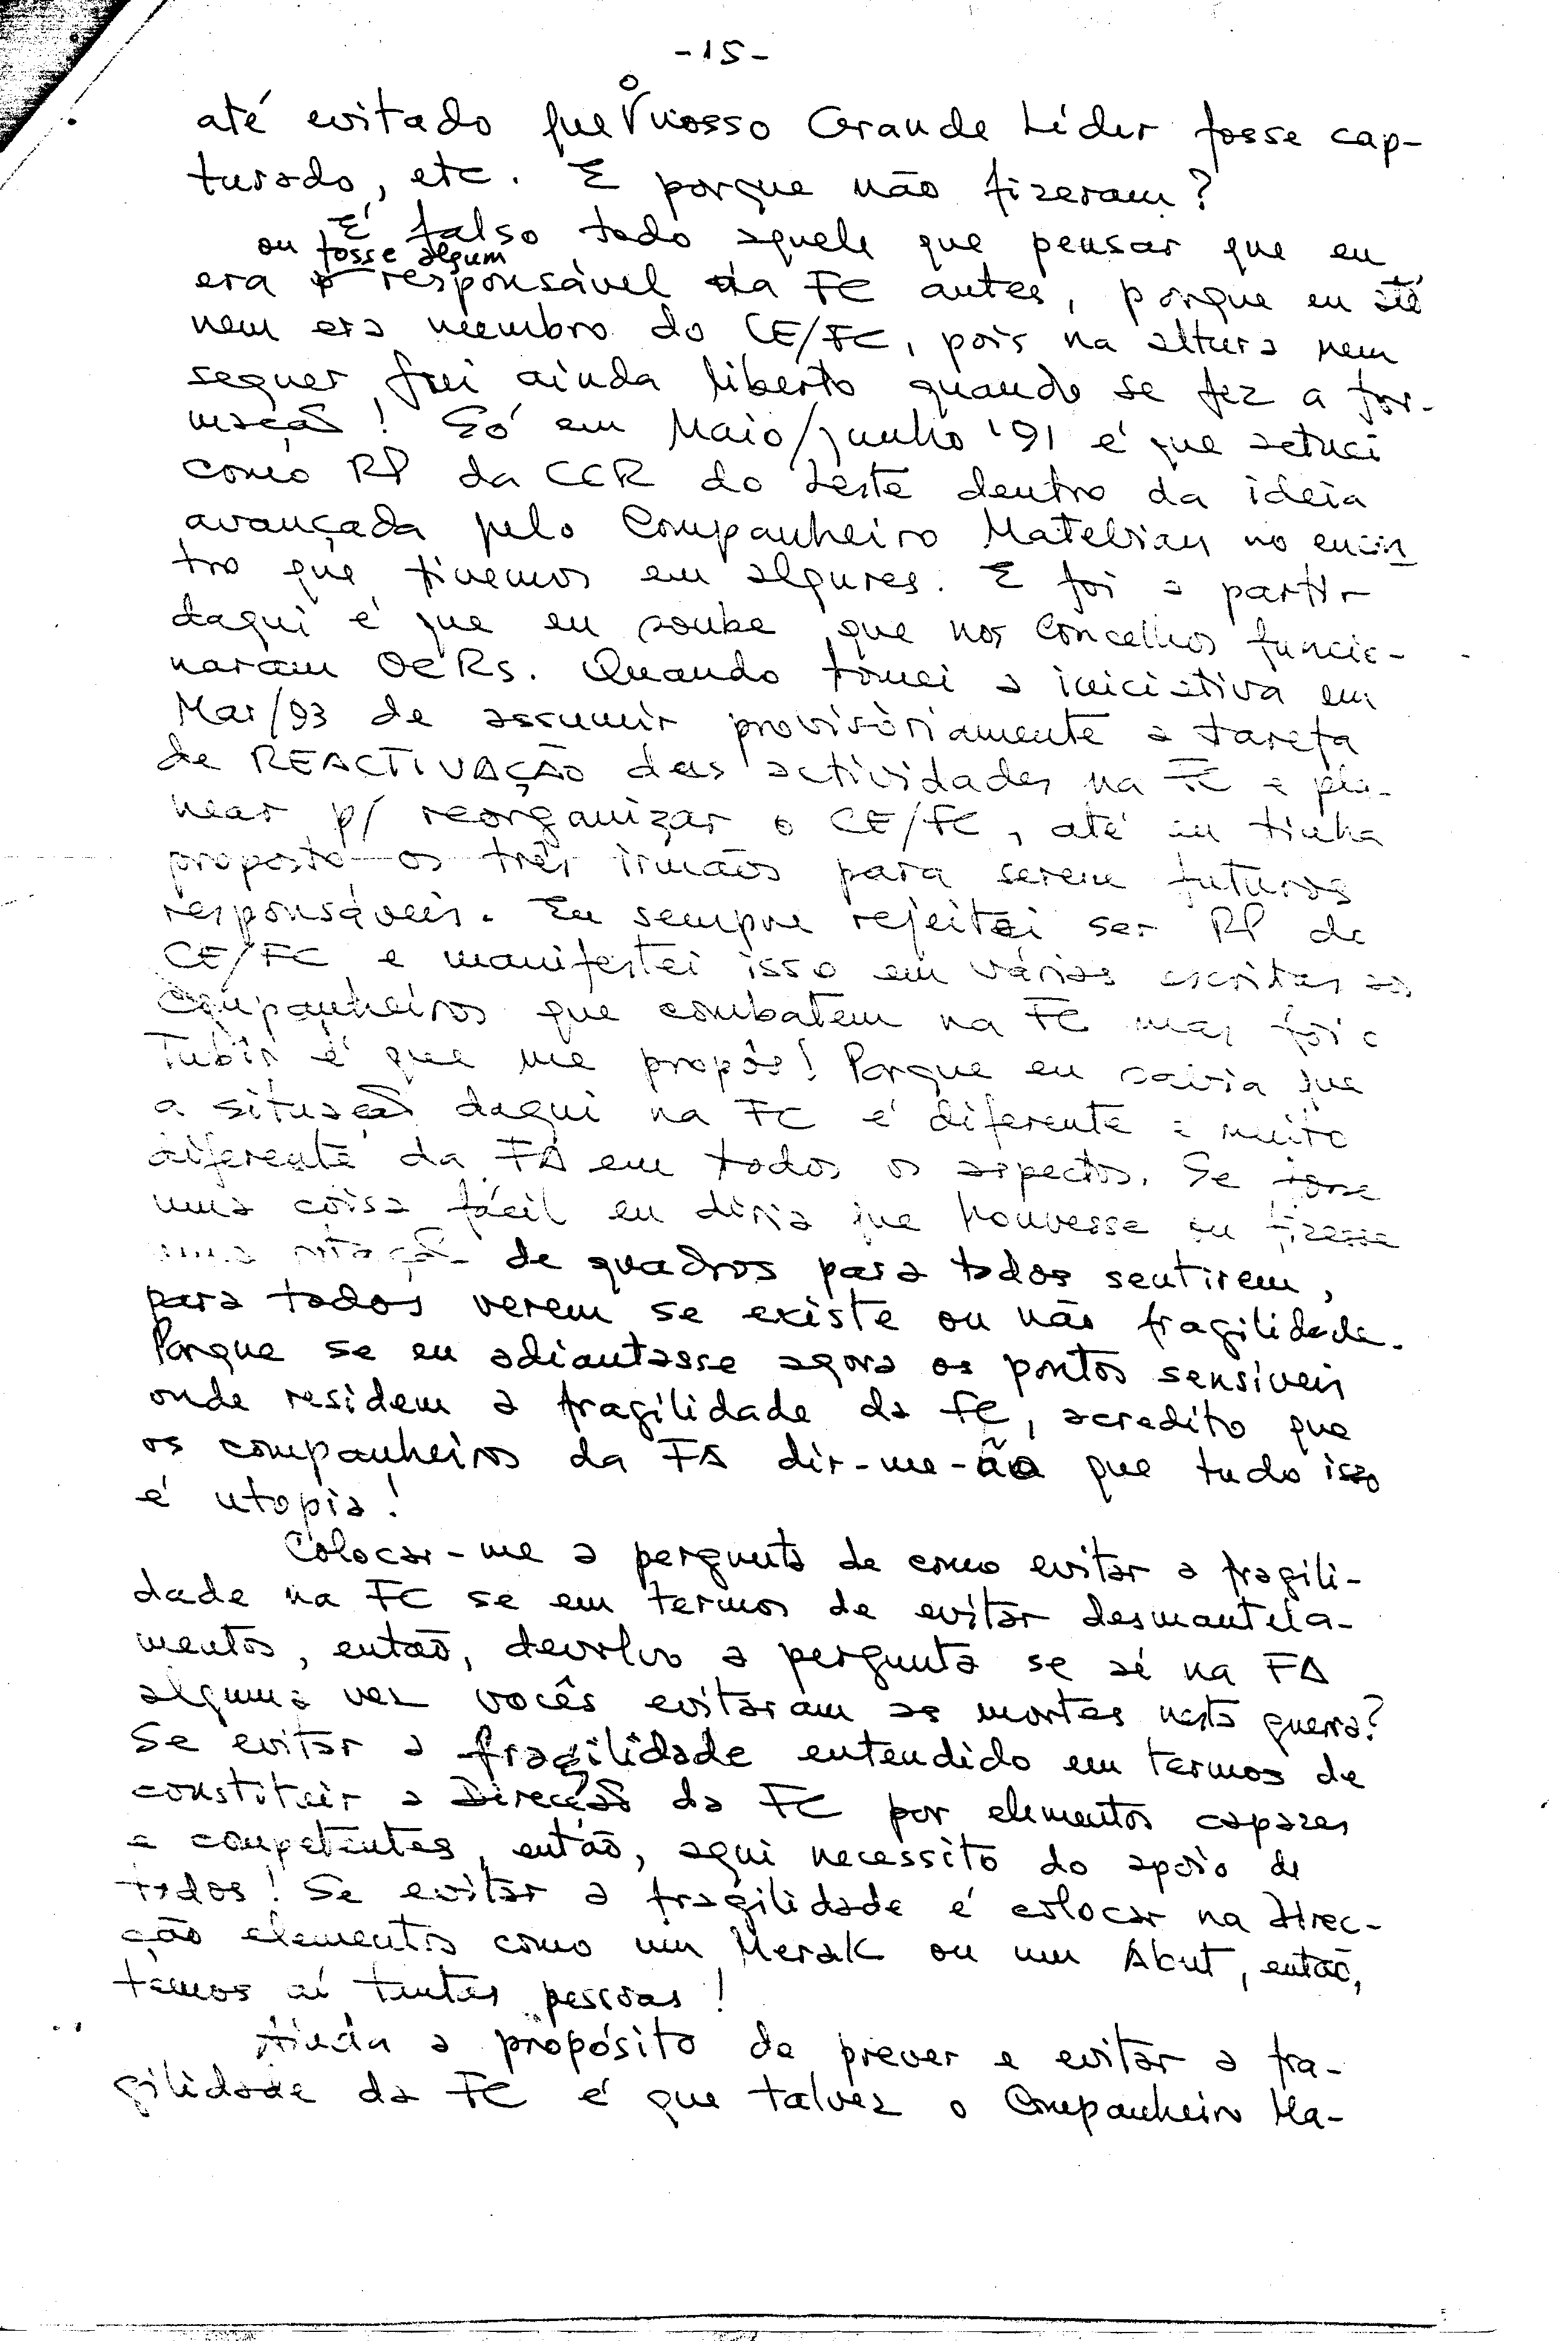 -15-
até evitado que o nosso Grande Líder fosse cap-
turado, etc. E porque não fizeram?
É falso todo aquele que pensar que eu
ou fosse algum
era o responsável da FC antes, porque eu até
nem era membro do CE/FC, pois na altura nem
sequer fui ainda liberto quando se fez a for-
mação! Só em Maio/junho '91 é que actuei
como RP da CCR do Leste dentro da ideia
avançada pelo Companheiro Matebian no encon
tro que tivemos em algures. E foi a partir
daqui é que eu soube que nos Concelhos funcio-
naram OCRs. Quando tomei a iniciativa em
Mar/93 de assumir provisòriamente a tarefa
de REACTIVAÇÃO das actividades na FC e pla-
near p/ reorganizar o CE/FC, até eu tinha
proposto os três irmãos para serem futuros
responsáveis. Eu sempre rejeitei ser RP do
CE/FC e manifestei isso em várias escritas aos
Companheiros que combatem na FC mas foi o
Tubir é que me propôs! Porque eu sabia que
a situação daqui na FC é diferente e muito
diferente da FA em todos os aspectos. Se fosse
uma coisa fácil eu diria que houvesse ou fizesse
uma rotação de quadros para todos sentirem,
para todos verem se existe ou não fragilidade.
Porque se eu adiantasse agora os pontos sensíveis
onde residem a fragilidade da FC, acredito que
os companheiros da FA dir-me-ão que tudo isso
é utopia!
Colocar-me a pergunta de como evitar a fragili-
dade na FC se em termos de evitar desmantela-
mentos, então, devolvo a pergunta se aí na FA
alguma vez vocês evitaram as mortes nesta guerra?
Se evitar a fragilidade entendido em termos de
constituir a Direcção da FC por elementos capazes
e competentes, então, aqui necessito do apoio de
todos! Se evitar a fragilidade é colocar na Direc-
ção elementos como um Merak ou um Abut, então,
temos aí tantas pessoas!
Ainda a propósito de prever e evitar a fra-
gilidade da FC é que talvez o Companheiro Ma-